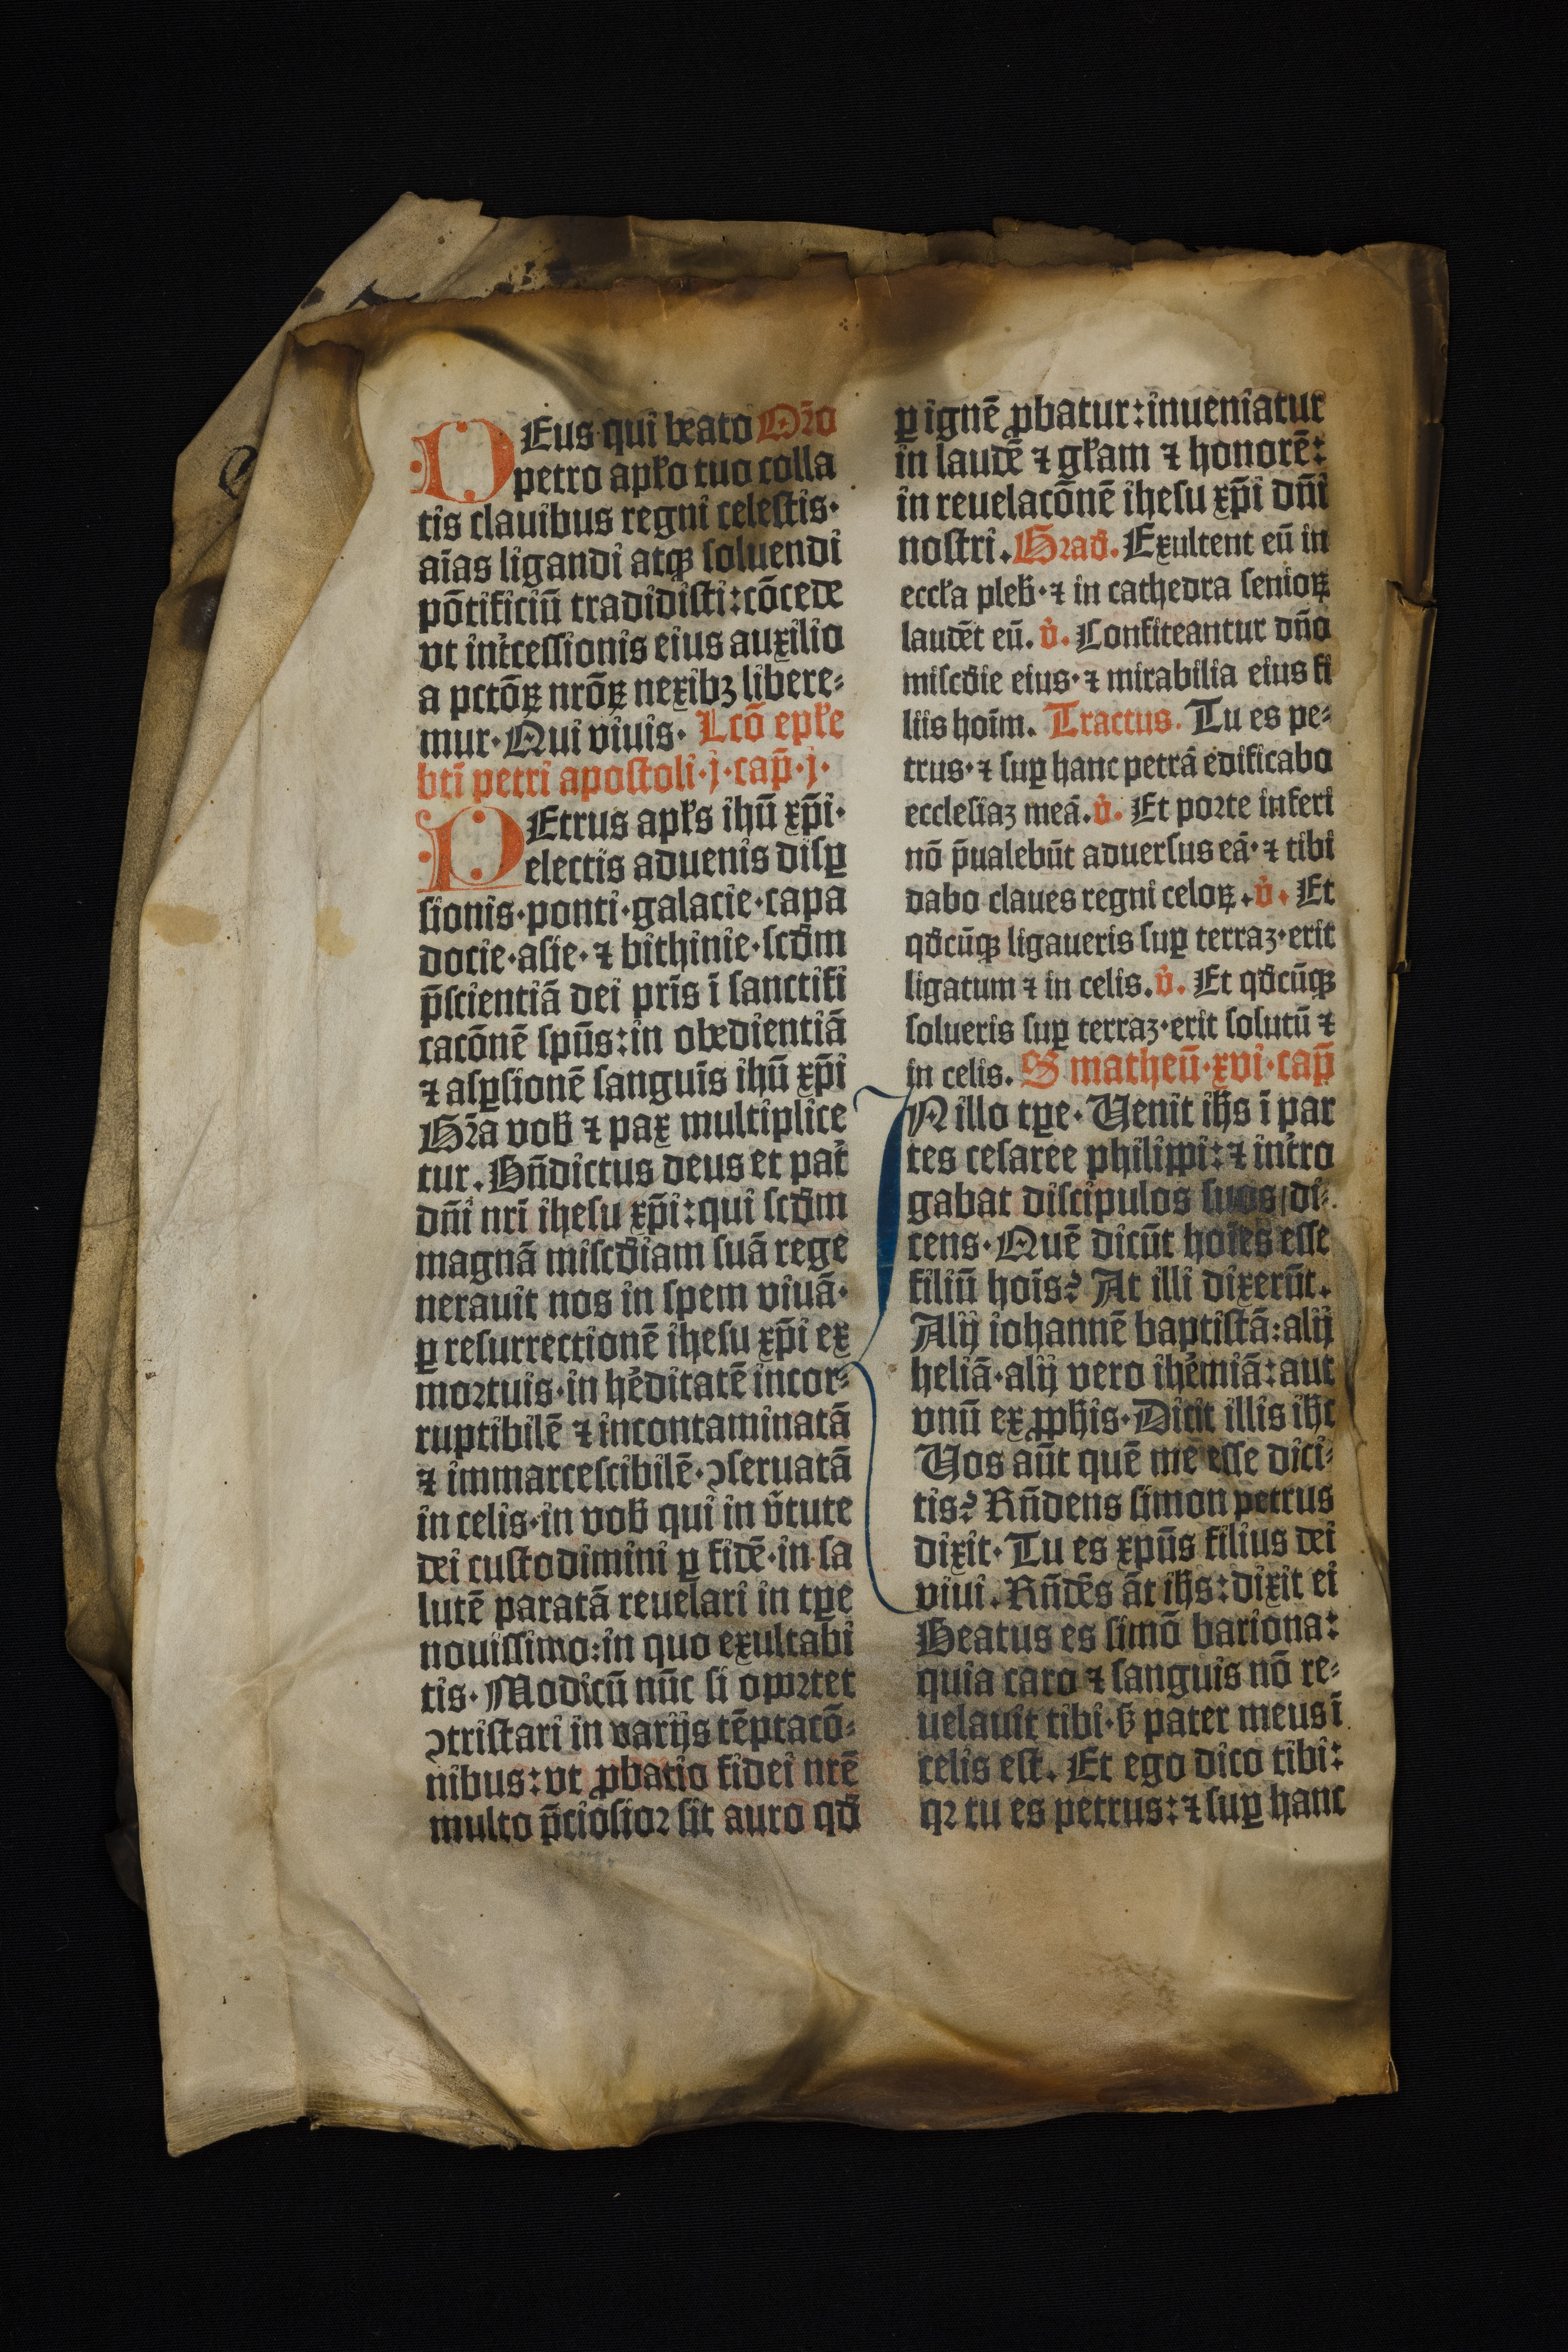 DEus qui beato Oro̅
petro apł'o tuo colla
tis clauibus regni celestis·
ai̅as ligandi atqꝫ soluendi
po̅tificiu̅ tradidisti: co̅cede
vt int̓cessionis eius auxilio
a pcto̅ꝝ nro̅ꝝ nexibꝫ libere⸗
mur· Qui viuis· Lco̅ epł'e
bti̅ petri apostoli·j·cap̅·j·
PEtrus apł's ihu̅ xp̅i·
electis aduenis disꝑ
sionis·ponti·galacie·capa
docie·asie·⁊ bithinie·scd̓m
p̅scientia̅ dei pri̅s i̅ sanctifi
caco̅ne̅ spu̅s: in obedientia̅
⁊ asꝑsione̅ sangui̅s ihu̅ xp̅i
Gr̅a vob̓ ⁊ pax multiplice
tur. Bn̅dictus deus et pat̓
dn̅i nri̅ ihesu xp̅i: qui scd̓m
magna̅ miscd̓iam sua̅ rege
nerauit nos in spem viua̅·
ꝑ resurrectione̅ ihesu xp̅i ex
mortuis·in he̓ditate̅ incor⸗
ruptibile̅ ⁊ incontaminata̅
⁊ immarcescibile̅·ꝯseruata̅
in celis·in vob̓ qui in v̓tute
dei custodimini ꝑ fide̅·in sa
lute̅ parata̅ reuelari in tꝑe
nouissimo: in quo exultabi
tis· Modicu̅ nu̅c si oportet
ꝯtristari in varijs te̅ptaco̅⸗
nibus: vt ꝓbatio fidei nre̅
multo p̅ciosior sit auro qd̓
ꝑ igne̅ ꝓbatur: inueniatur
in laude̅ ⁊ gł'am ⁊ honore̅:
in reuelaco̅ne̅ ihesu xp̅i dn̅i
nostri. Grad̓. Exultent eu̅ in
eccł'a pleb̓·⁊ in cathedra senioꝝ
laude̅t eu̅. v̓. Confiteantur dn̅o
miscd̓ie eius·⁊ mirabilia eius fi
liis hoi̅m. Tractus. Tu es pe⸗
trus·⁊ suꝑ hanc petra̅ edificabo
ecclesiaꝫ mea̅. v̓. Et porte inferi
no̅ p̅ualebu̅t aduersus ea̅·⁊ tibi
dabo claues regni celoꝝ. v̓. Et
qd̓cu̅qꝫ ligaueris suꝑ terraꝫ·erit
ligatum ⁊ in celis. v̓. Et qd̓cu̅qꝫ
solueris suꝑ terraꝫ·erit solutu̅ ⁊
in celis. S matheu̅·xvi·cap̅
IN illo tꝑe· Uenit ih̅s i̅ par
tes cesaree philippi: ⁊ int̓ro
gabat discipulos suos/di⸗
cens· Que̅ dicu̅t hoi̅es esse
filiu̅ hoi̅s? At illi dixeru̅t.
Alij iohanne̅ baptista̅: alij
helia̅·alij vero ihe̓mia̅: aut
vnu̅ ex ꝓph̓is· Dicit illis ih̅c
Uos au̅t que̅ me esse dici⸗
tis? Rn̅dens simon petrus
dixit· Tu es xpu̅s filius dei
viui. Rn̅de̅s a̅t ih̅s: dixit ei
Beatus es simo̅ bariona:
quia caro ⁊ sanguis no̅ re⸗
uelauit tibi·s̓ pater meus i̅
celis est. Et ego dico tibi:
qꝛ tu es petrus: ⁊ suꝑ hanc